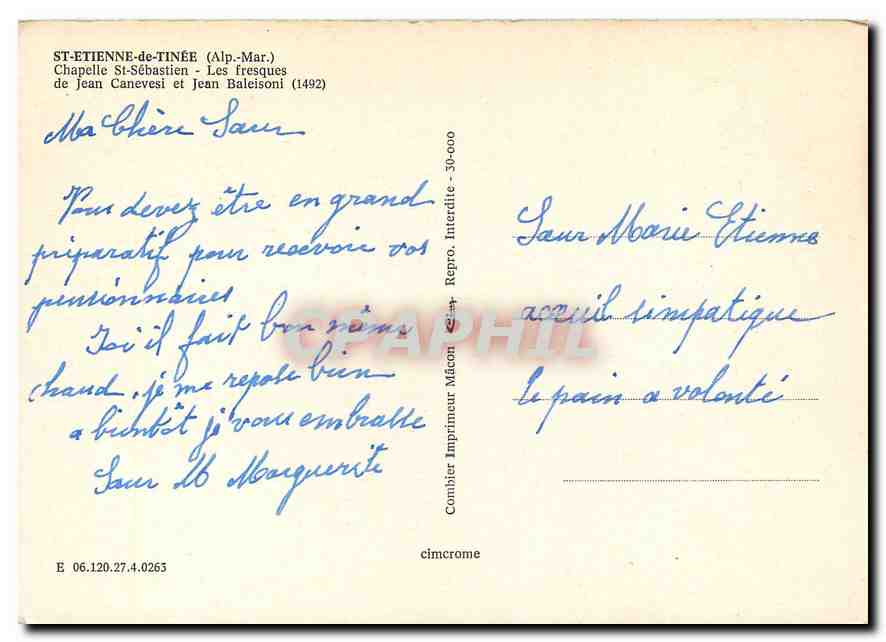 ST-ETIENNE-de-TINÉE (Alp.-Mar.)
Chapelle St-Sébastien - Les fresques
de Jean Canevesi et Jean Baleisoni (1492)
Ma Chère Sœur
Vous devez être en grand
préparatif pour recevoir vos
pensionnaires
Ici il fait bon même
chaud, je me repose bien
a bientôt je vous embrasse
Sœur M Marguerite
E 06.120.27.4.0263
Combier Imprimeur Mâcon - Repro. Interdite - 30-000
cimcrome
CPAPHIL
Sœur Marie Etienne
acceuil simpatique
le pain a volonté